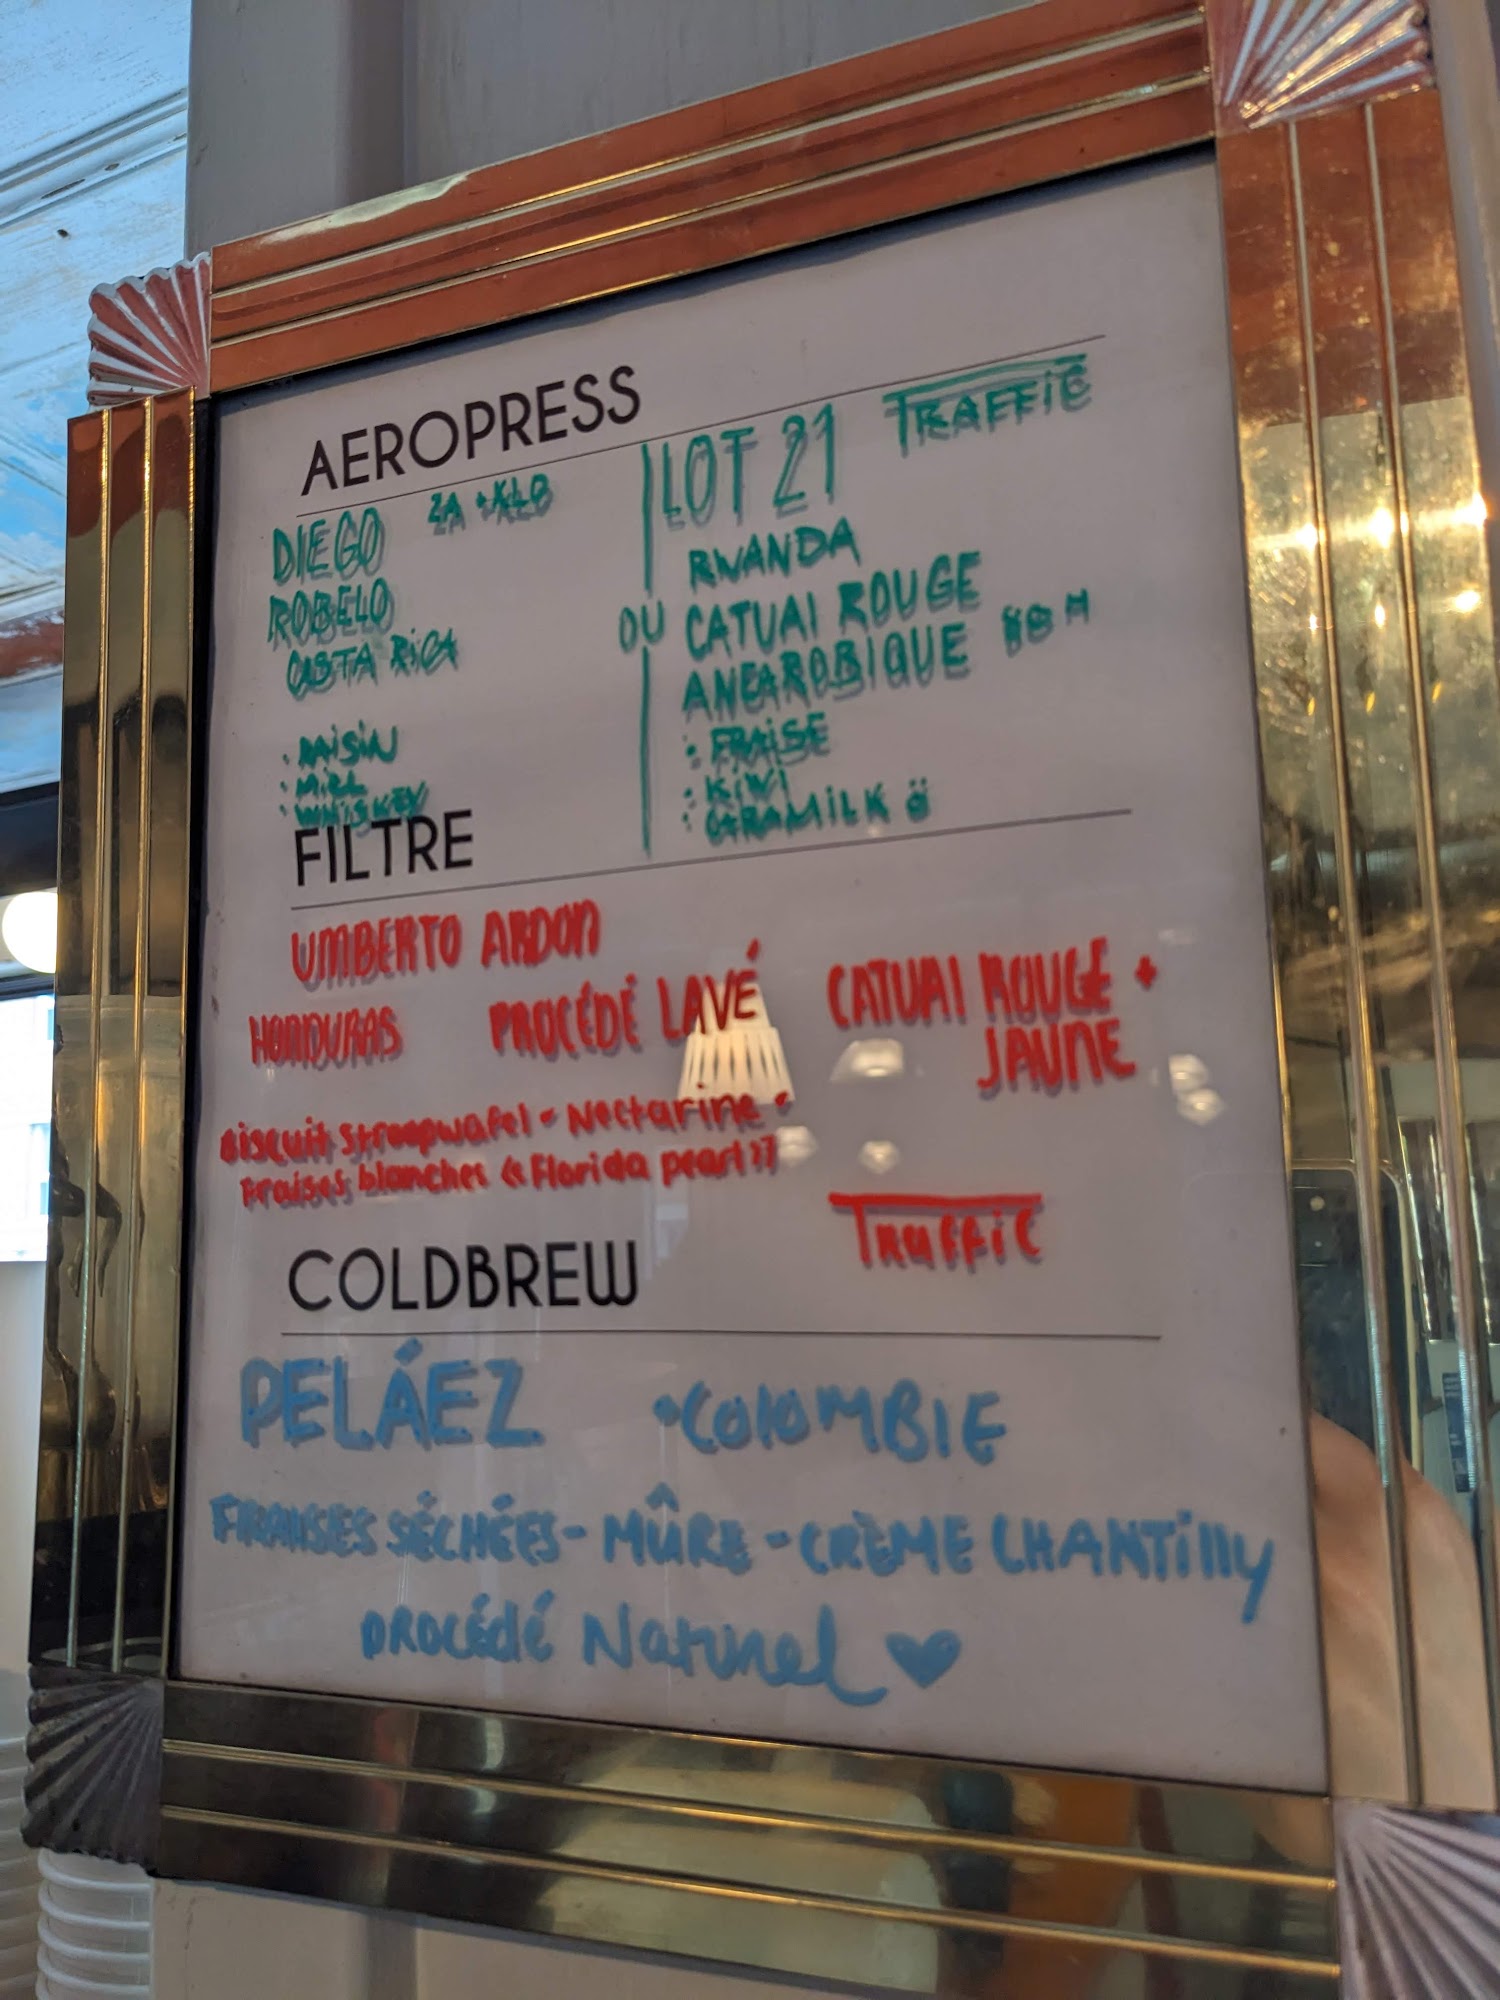 AEROPRESS
DIEGO
ROBELO
COSTA RICA
• RAISIN
• MIEL
• WHISKEY
OU
LOT 21 TRAFFIC
RWANDA
CATUAI ROUGE
ANEAROBIQUE
• FRAISE
• KIWI
• CARAMILK
FILTRE
UMBERTO ARDON
HONDURAS PROCÉDÉ LAVÉ CATUAI ROUGE +
JAUNE
Biscuit stroopwafel - Nectarine -
Fraises blanches « Florida pearl »
TRAFFIC
COLDBREW
PELÁEZ • COLOMBIE
FRAISES SÉCHÉES - MÛRE - CRÈME CHANTILLY
PROCÉDÉ Naturel ♥